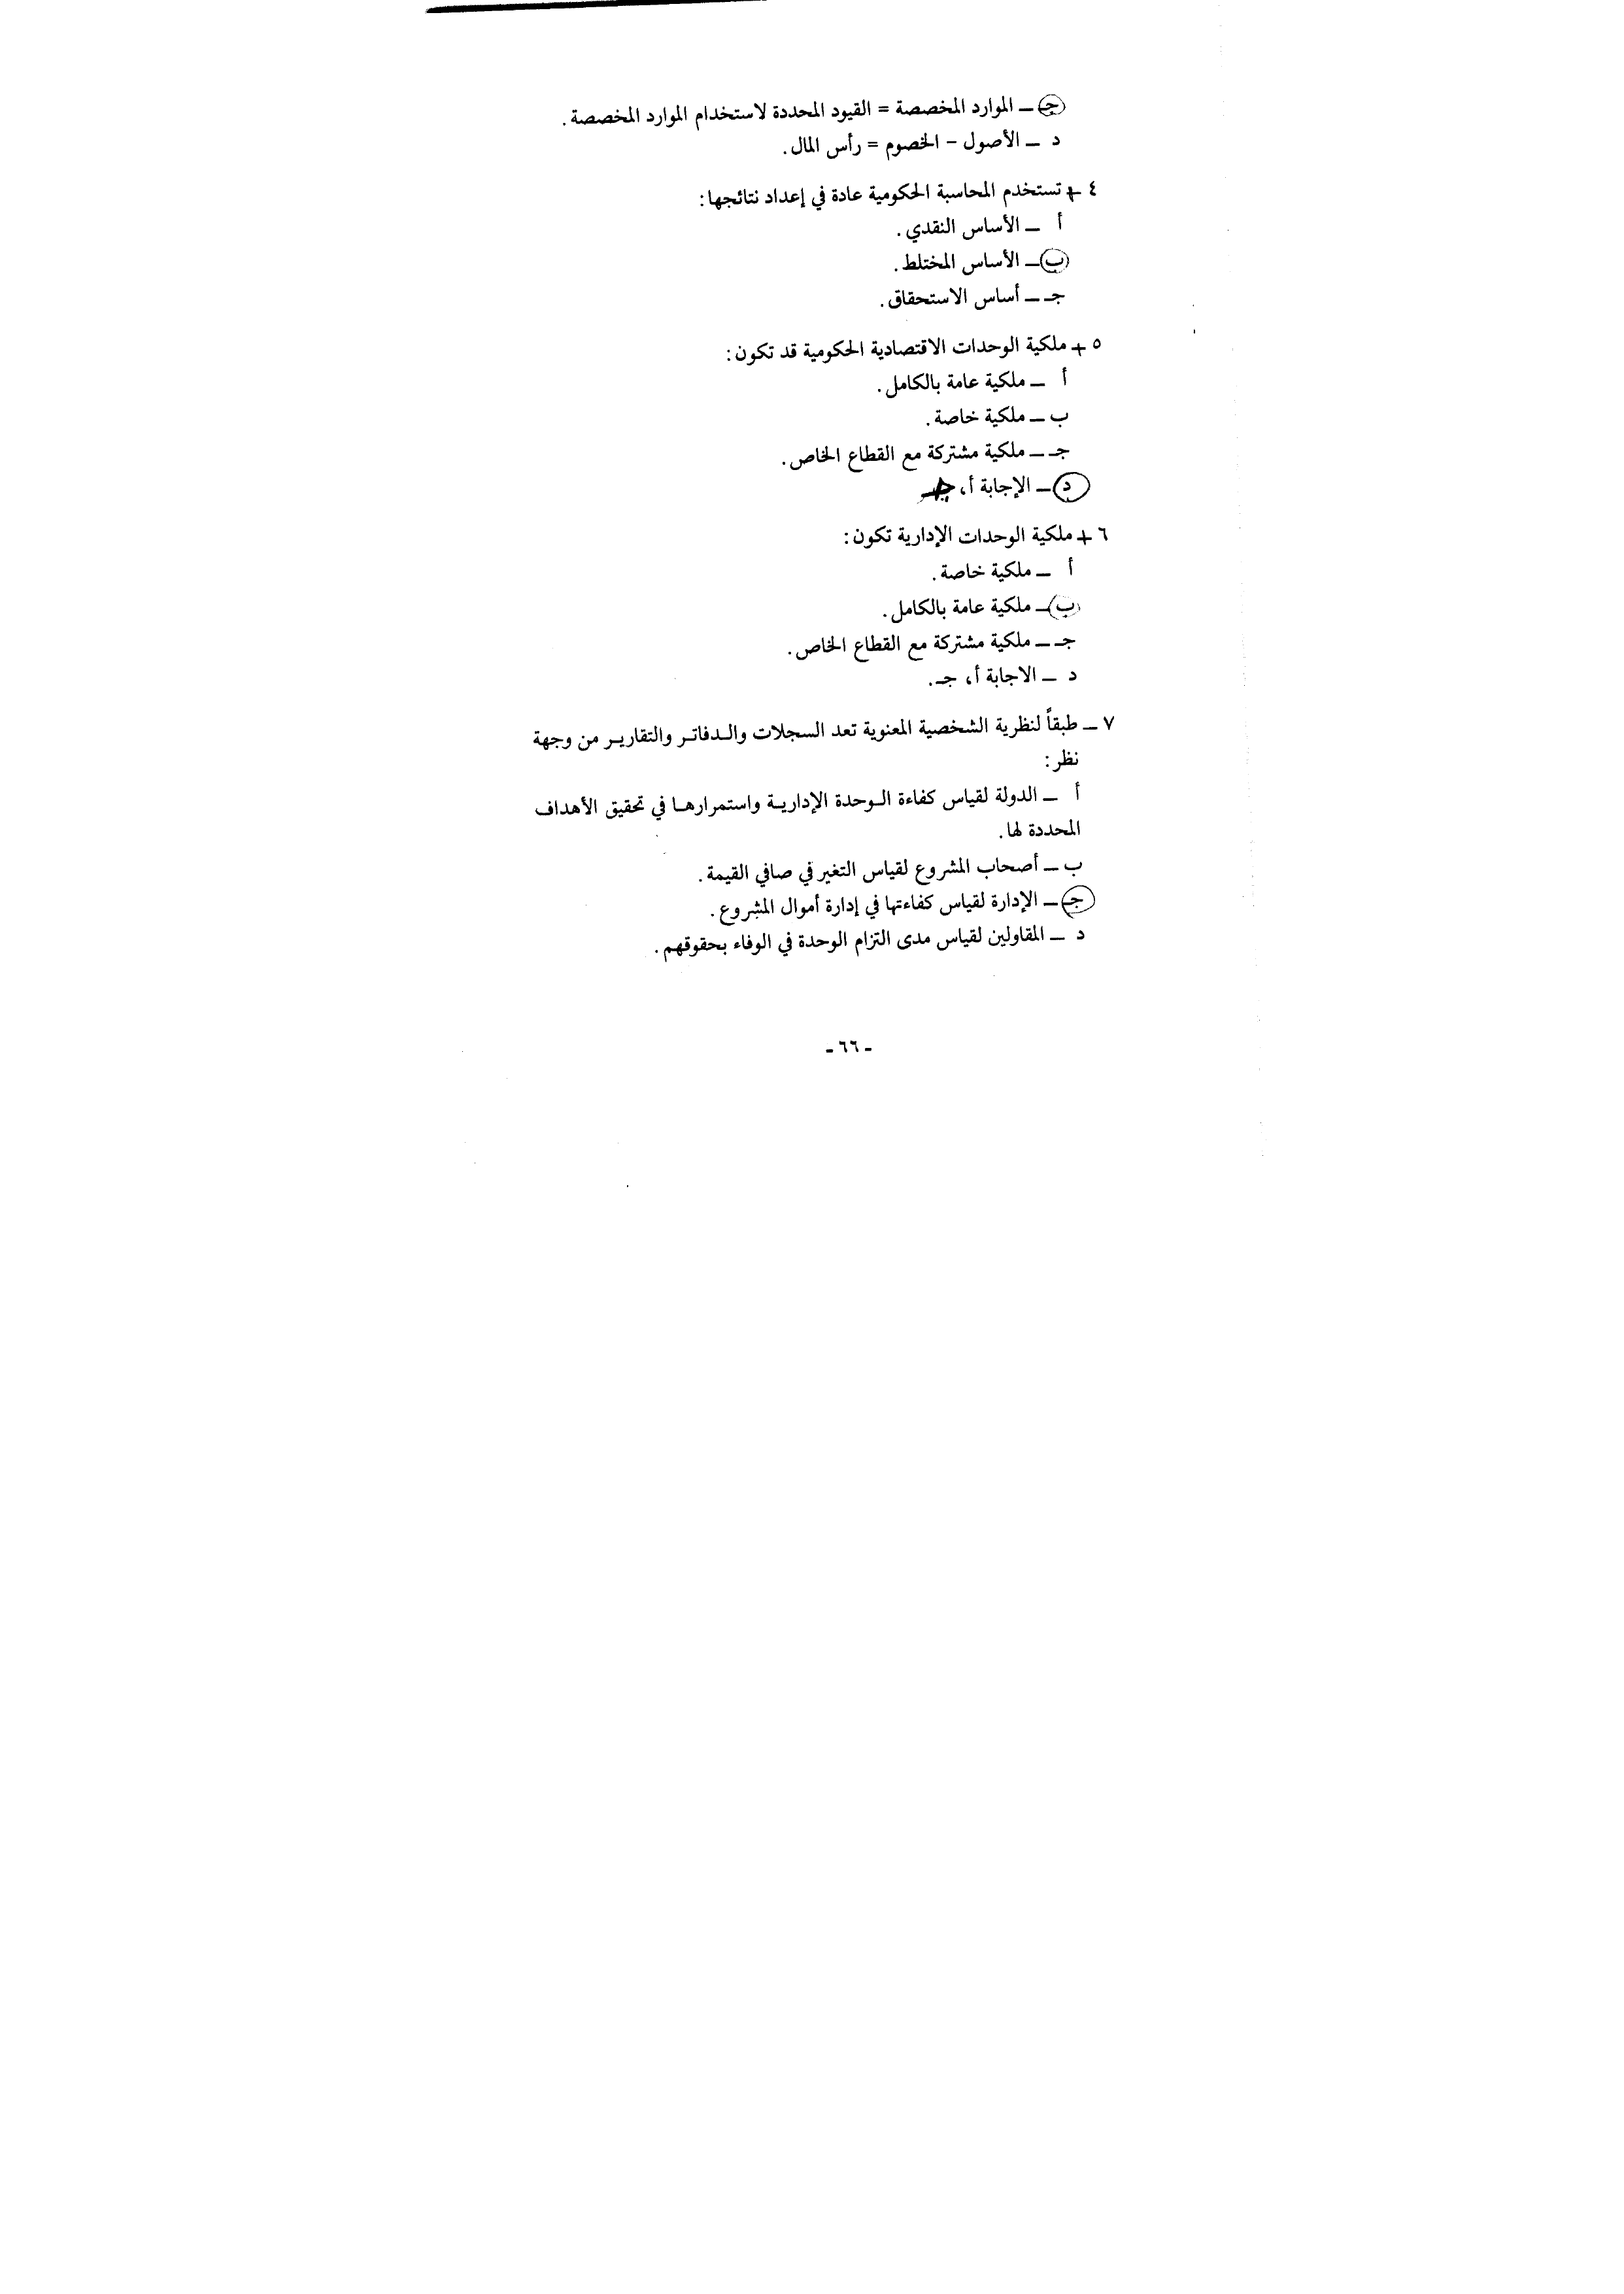 جـ ـ الموارد المخصصة = القيود المحددة لاستخدام الموارد المخصصة.
د ـ الأصول - الخصوم = رأس المال.
٤ ـ تستخدم المحاسبة الحكومية عادة في إعداد نتائجها:
أ ـ الأساس النقدي.
ب ـ الأساس المختلط.
جـ ـ أساس الاستحقاق.
٥ ـ ملكية الوحدات الاقتصادية الحكومية قد تكون:
أ ـ ملكية عامة بالكامل.
ب ـ ملكية خاصة.
جـ ـ ملكية مشتركة مع القطاع الخاص.
د ـ الإجابة أ، جـ
٦ ـ ملكية الوحدات الإدارية تكون:
أ ـ ملكية خاصة.
ب ـ ملكية عامة بالكامل.
جـ ـ ملكية مشتركة مع القطاع الخاص.
د ـ الاجابة أ، جـ.
٧ ـ طبقاً لنظرية الشخصية المعنوية تعد السجلات والـدفاتـر والتقاريـر من وجهة
نظر:
أ ـ الدولة لقياس كفاءة الـوحدة الإداريـة واستمرارهـا في تحقيق الأهداف
المحددة لها.
ب ـ أصحاب المشروع لقياس التغير في صافي القيمة.
جـ ـ الإدارة لقياس كفاءتها في إدارة أموال المشروع.
د ـ المقاولين لقياس مدى التزام الوحدة في الوفاء بحقوقهم.
- ٦٦ -